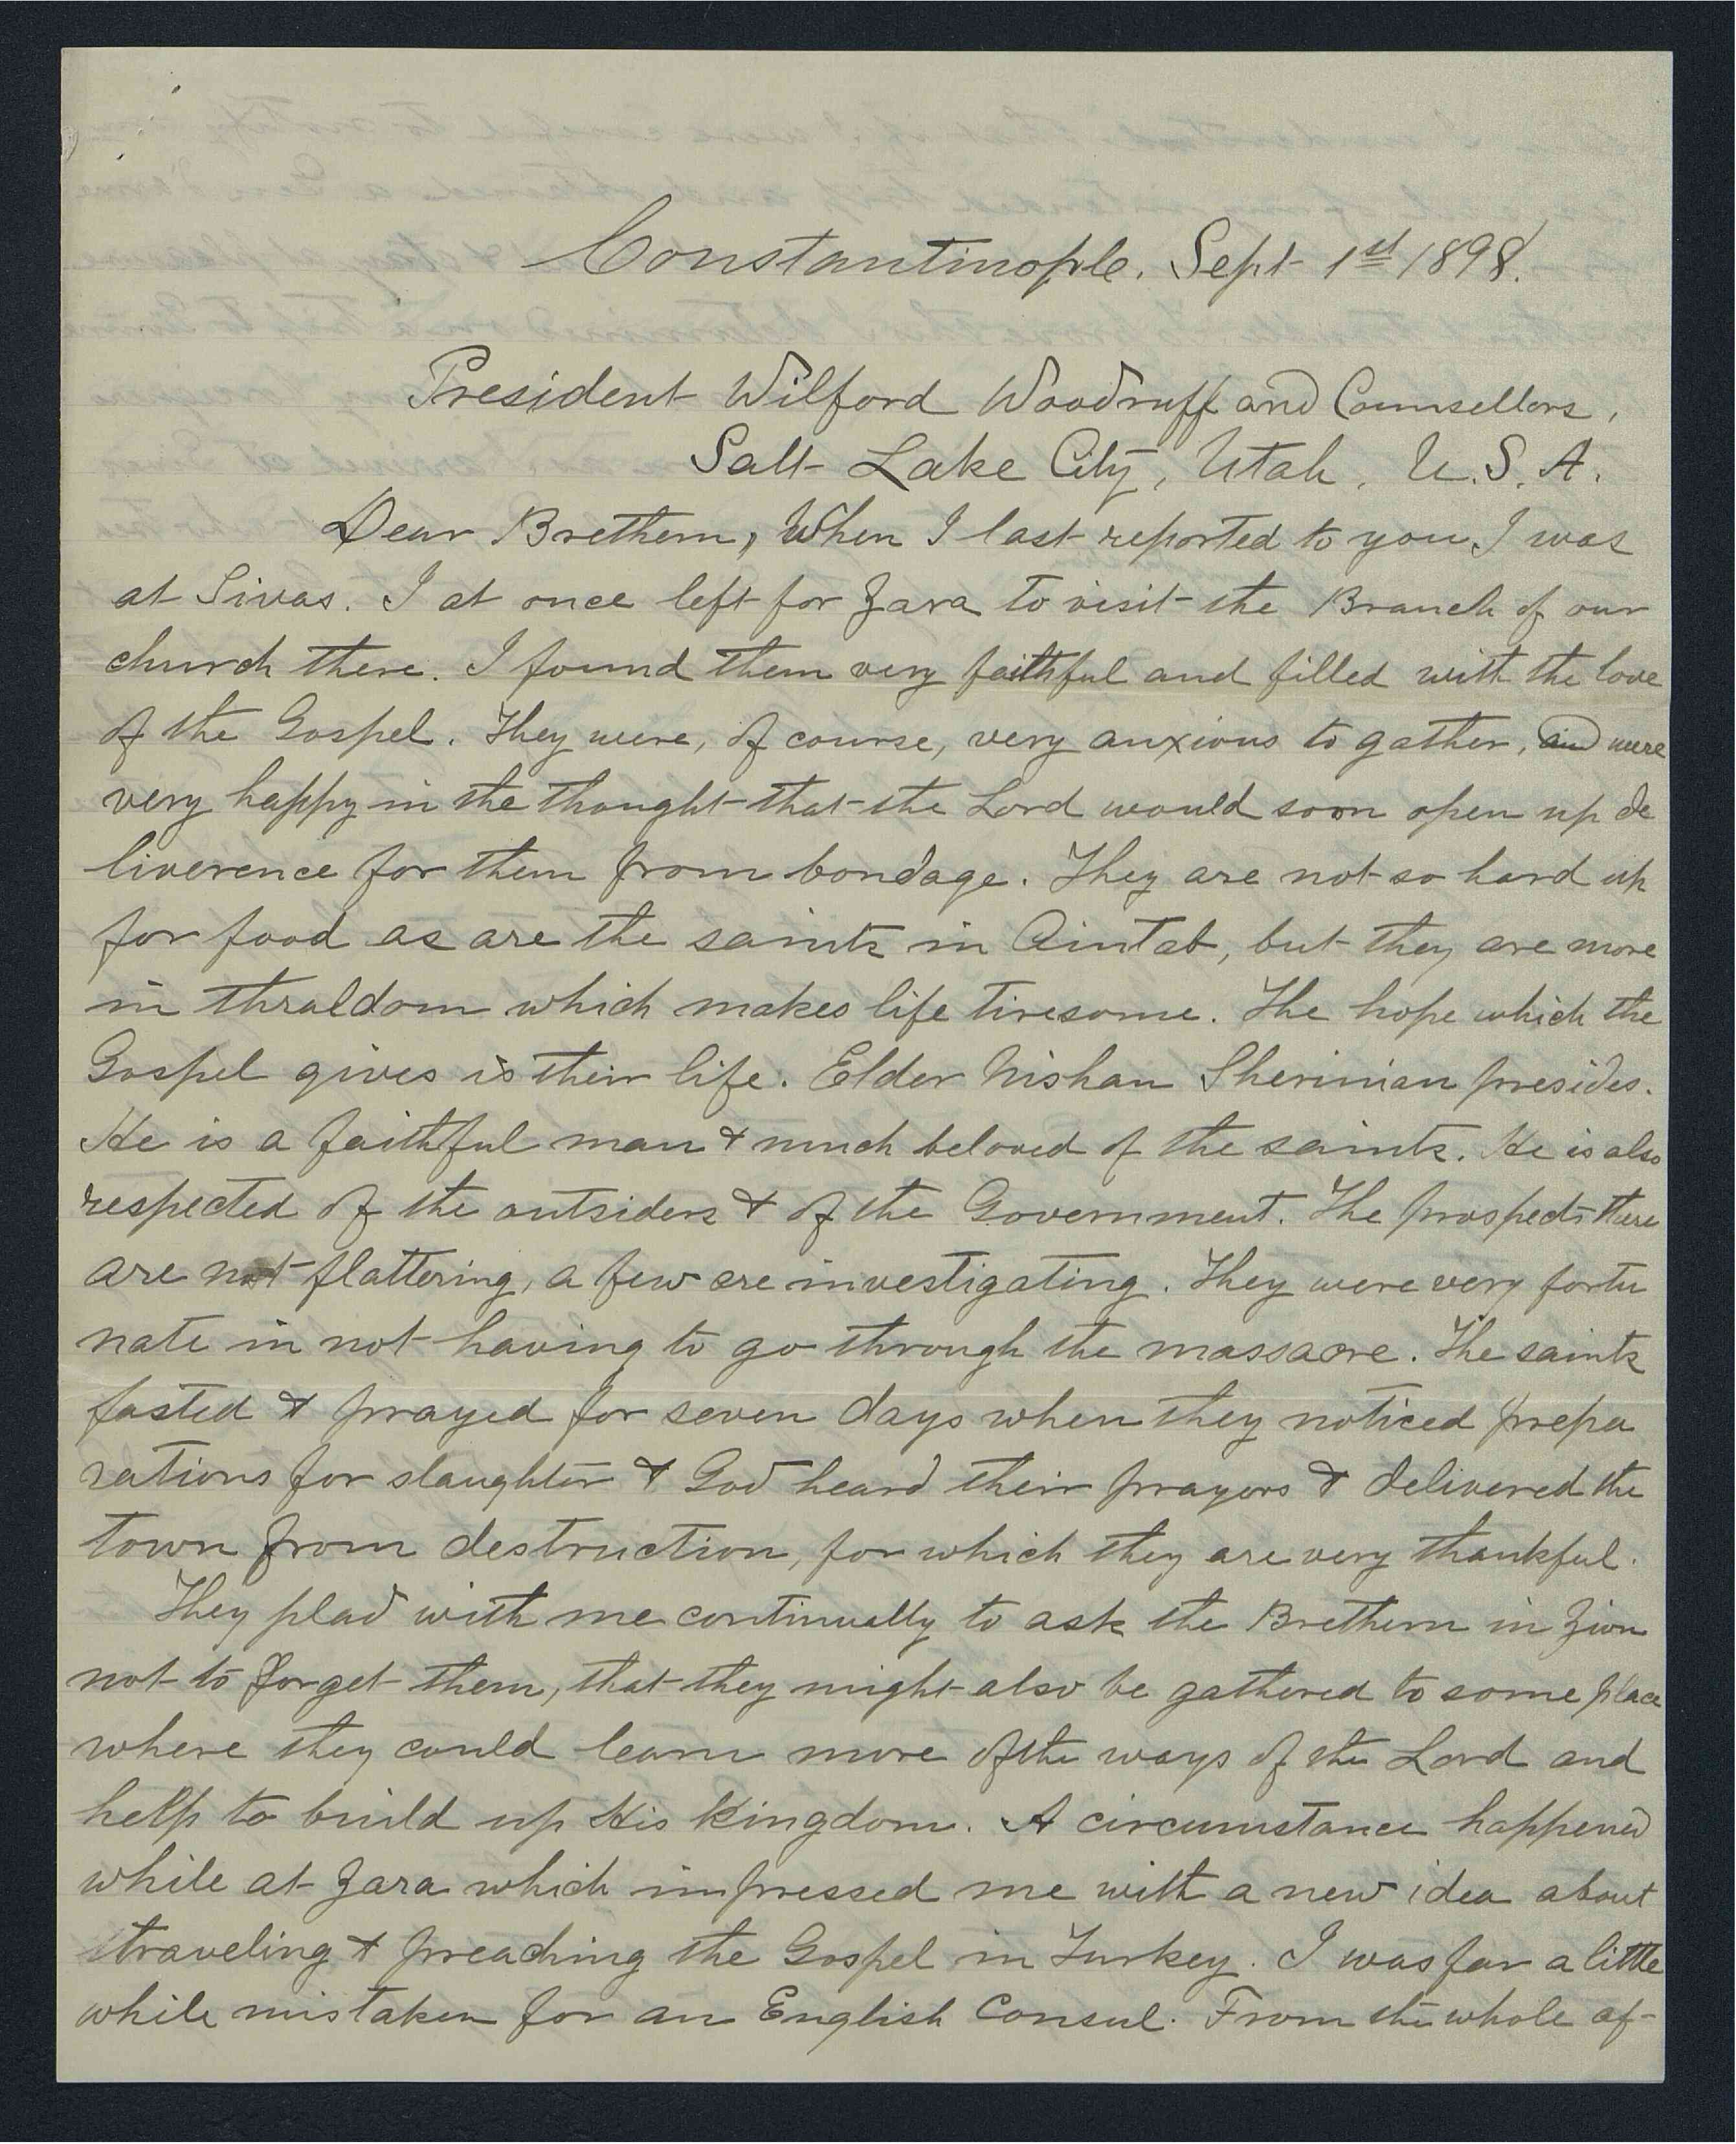 Constantinople. Sept 1st 1898.
President Wilford Woodruff and Counsellors,
Salt Lake City, Utah, U.S.A.
Dear Brethern, When I last reported to you I was
at Sivas. I at once left for Zara to visit the Branch of our
church there. I found them very faithful and filled with the love
of the Gospel. They were, of course, very anxious to gather, and were
very happy in the thought that the Lord would soon open up de
liverence for them from bondage. They are not so hard up
for food as are the saints in Aintab, but they are more
in thraldom which makes life tiresome. The hope which the
Gospel gives is their life. Elder Nishan Sherinian presides.
He is a faithful man & much beloved of the saints. He is also
respected of the outsiders & of the Government. The prospects there
are not flattering, a few are investigating. They were very fortu
nate in not having to go through the massacre. The saints
fasted & prayed for seven days when they noticed prepa
rations for slaughter & God heard their prayers & delivered the
town from destruction, for which they are very thankful.
They plad with me continually to ask the Brethern in Zion
not to forget them, that they might also be gathered to some place
where they could learn more of the ways of the Lord and
help to build up His Kingdom. A circumstance happened
while at Zara which impressed me with a new idea about
traveling & preaching the Gospel in Turkey. I was for a little
while mistaken for an English Consul. From the whole af-